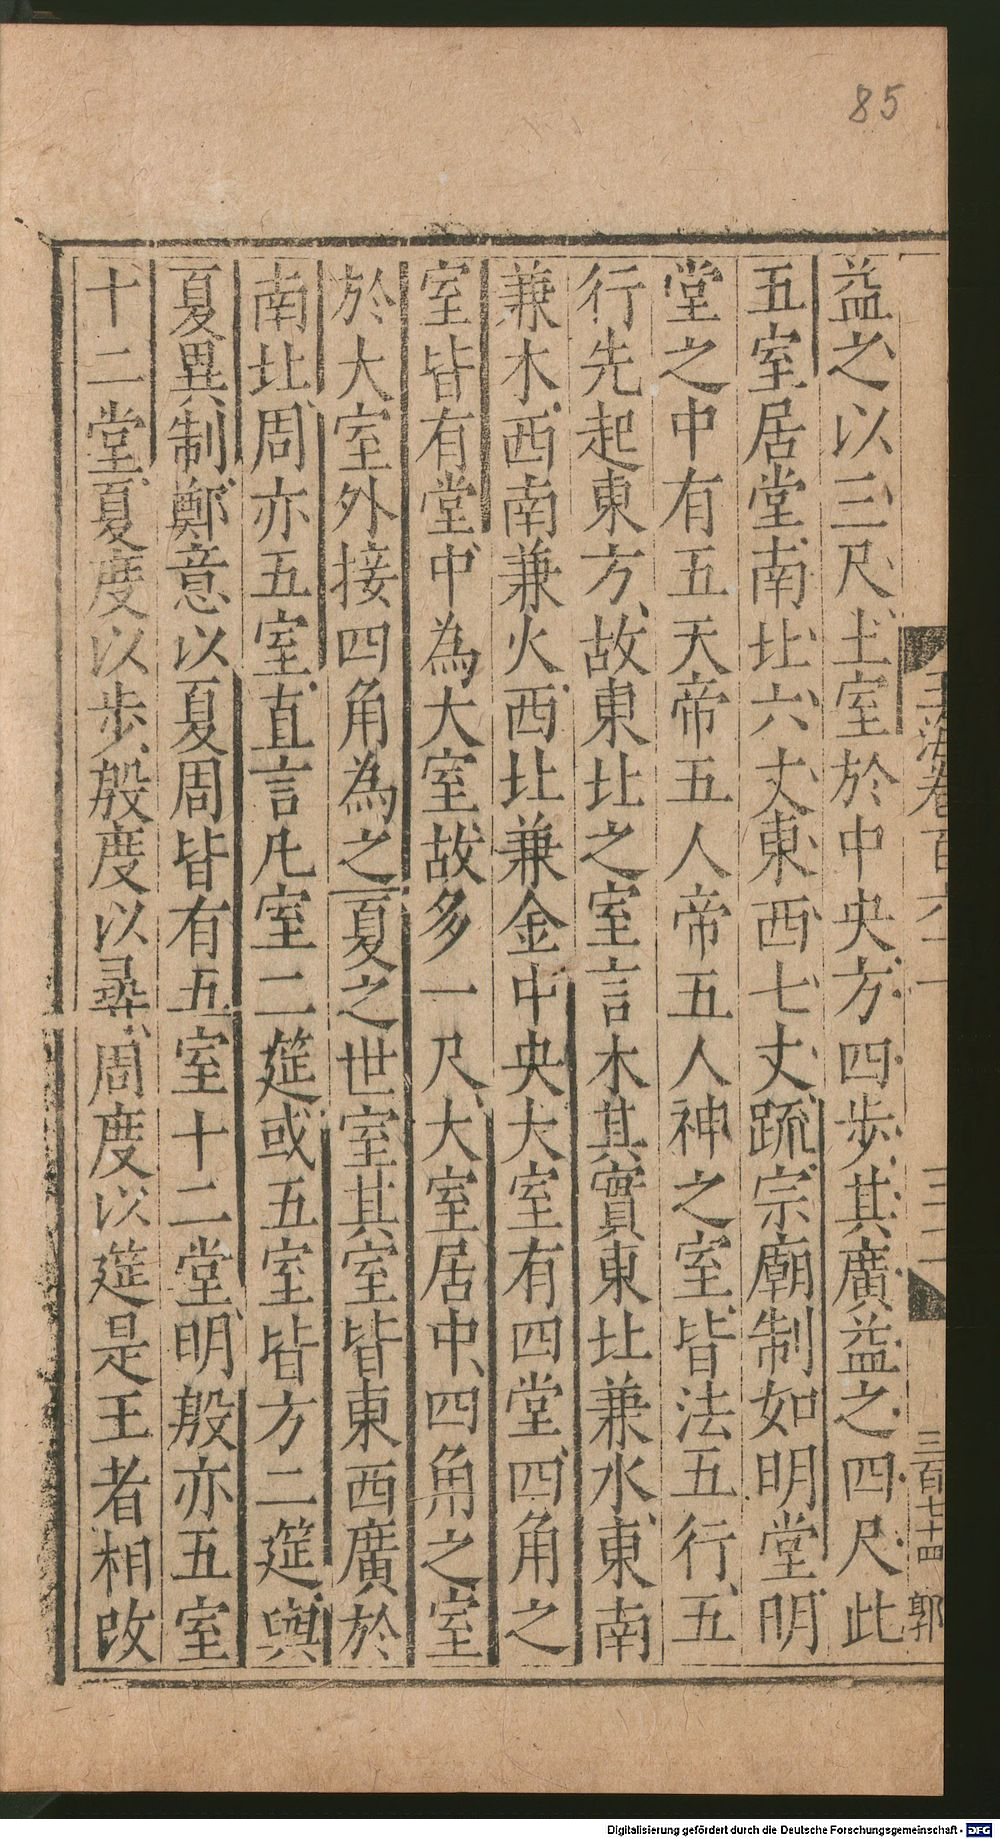 85
益之以三尺土室於中央方四步其廣益之四尺此
五室居堂南北六丈東西七丈疏宗廟制如明堂明
堂之中有五天帝五人帝五人神之室皆法五行五
行先起東方故東北之室言木其實東北兼水東南
兼木西南兼火西北兼金中央大室有四堂四角之
室皆有堂中為大室故多一尺大室居中四角之室
於大室外接四角為之夏之世室其室皆東西廣於
南北周亦五室直言凡室二筵或五室皆方二筵與
夏異制鄭意以夏周皆有五室十二堂明殷亦五室
十二堂夏度以步殷度以尋周度以筵是王者相改
玉海卷百六
三百七十四
郭
Digitalisierung gefördert durch die Deutsche Forschungsgemeinschaft - DFG